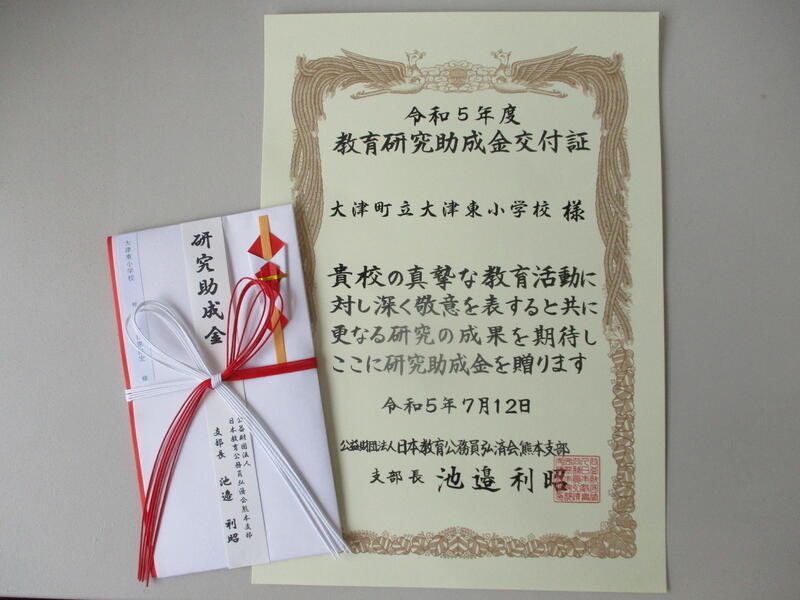 令和5年度
教育研究助成金交付証
大津町立大津東小学校 様
貴校の真摯な教育活動に
対し深く敬意を表すると共に
更なる研究の成果を期待し
ここに研究助成金を贈ります
令和5年7月12日
公益財団法人日本教育公務員弘済会熊本支部
支部長 池邉利昭
大津東小学校
様
研究助成金
公益財団法人
日本教育公務員弘済会熊本支部
支部長 池邉 利昭